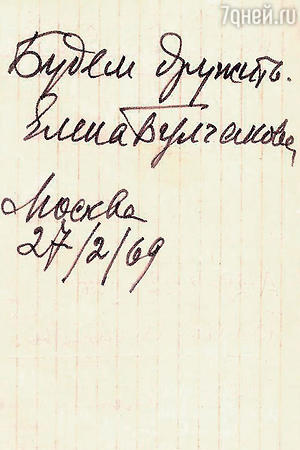 7дней.ru
Будем дружить.
Елена Булгакова
Москва
27/2/69